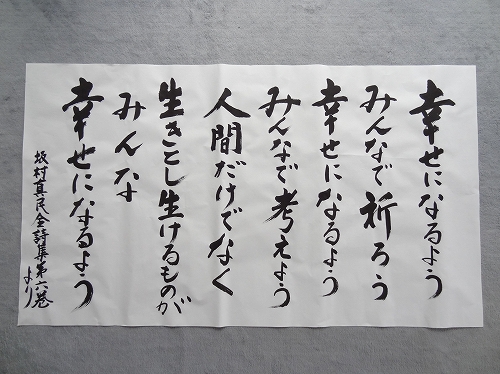 幸せになるよう
みんなで祈ろう
幸せになるよう
みんなで考えよう
人間だけでなく
生きとし生けるものが
みんな
幸せになるよう
坂村真民全詩集第六巻
より